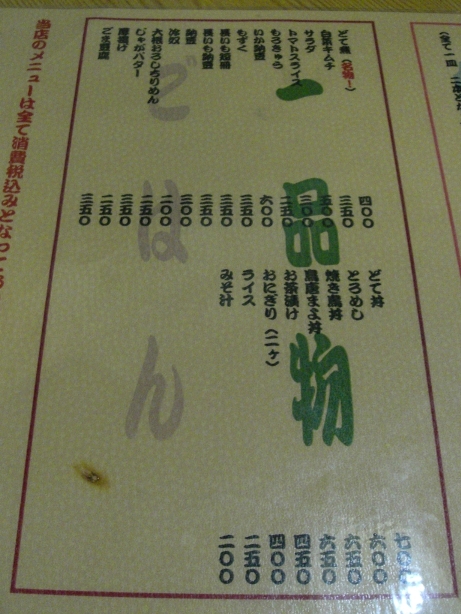 (全て一皿 二本
一品物
どて煮(名物!) 四〇〇
白菜キムチ 三五〇
サラダ 五〇〇
トマトスライス 三〇〇
もろきゅう 二五〇
いか納豆 六〇〇
もずく 三五〇
長いも短冊 三五〇
長いも納豆 三五〇
納豆
冷奴 二〇〇
大根おろしちりめん 二五〇
じゃがバター 三五〇
厚揚げ 二五〇
ごま豆腐 三五〇
ごはん
どて丼
とろめし 六〇〇
焼き鳥丼 六五〇
鳥唐まよ丼 六五〇
お茶漬け 四五〇
おにぎり(二ヶ) 四〇〇
ライス 二五〇
みそ汁
当店のメニューは全て消費税込みとなって